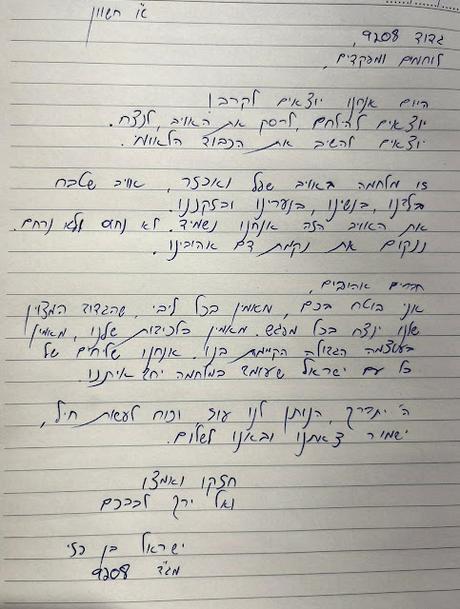 א' חשוון
גדוד 9208,
לוחמים ומפקדים,
היום אנחנו יוצאים לקרב!
יוצאים להילחם, לרסק את האויב, לנצח.
יוצאים להשיב את הכבוד הלאומי.
זו מלחמה באויב שפל ואכזר, אויב שטבח
בילדנו, בנשינו, בנערינו ובזקננו.
את האויב הזה אנחנו נשמיד. לא נחוס ולא נרחם.
ננקום את נקמת דם אהובינו.
חברים אהובים,
אני בוטח בכם, מאמין בכל ליבי, שהגדוד המצוין
שלנו ינצח בכל מפגש. מאמין בלכידות שלנו, מאמין
בעוצמה הגדולה הקיימת בנו. אנחנו שליחים של
כל עם ישראל שעומד במלחמה יחד איתנו.
ה' יתברך, הנותן לנו עוז וכוח לעשות חיל,
ישמור צאתנו ובואנו לשלום.
חזקו ואמצו
ואל ירך לבבכם
ישראל בן
מג"ד 9208